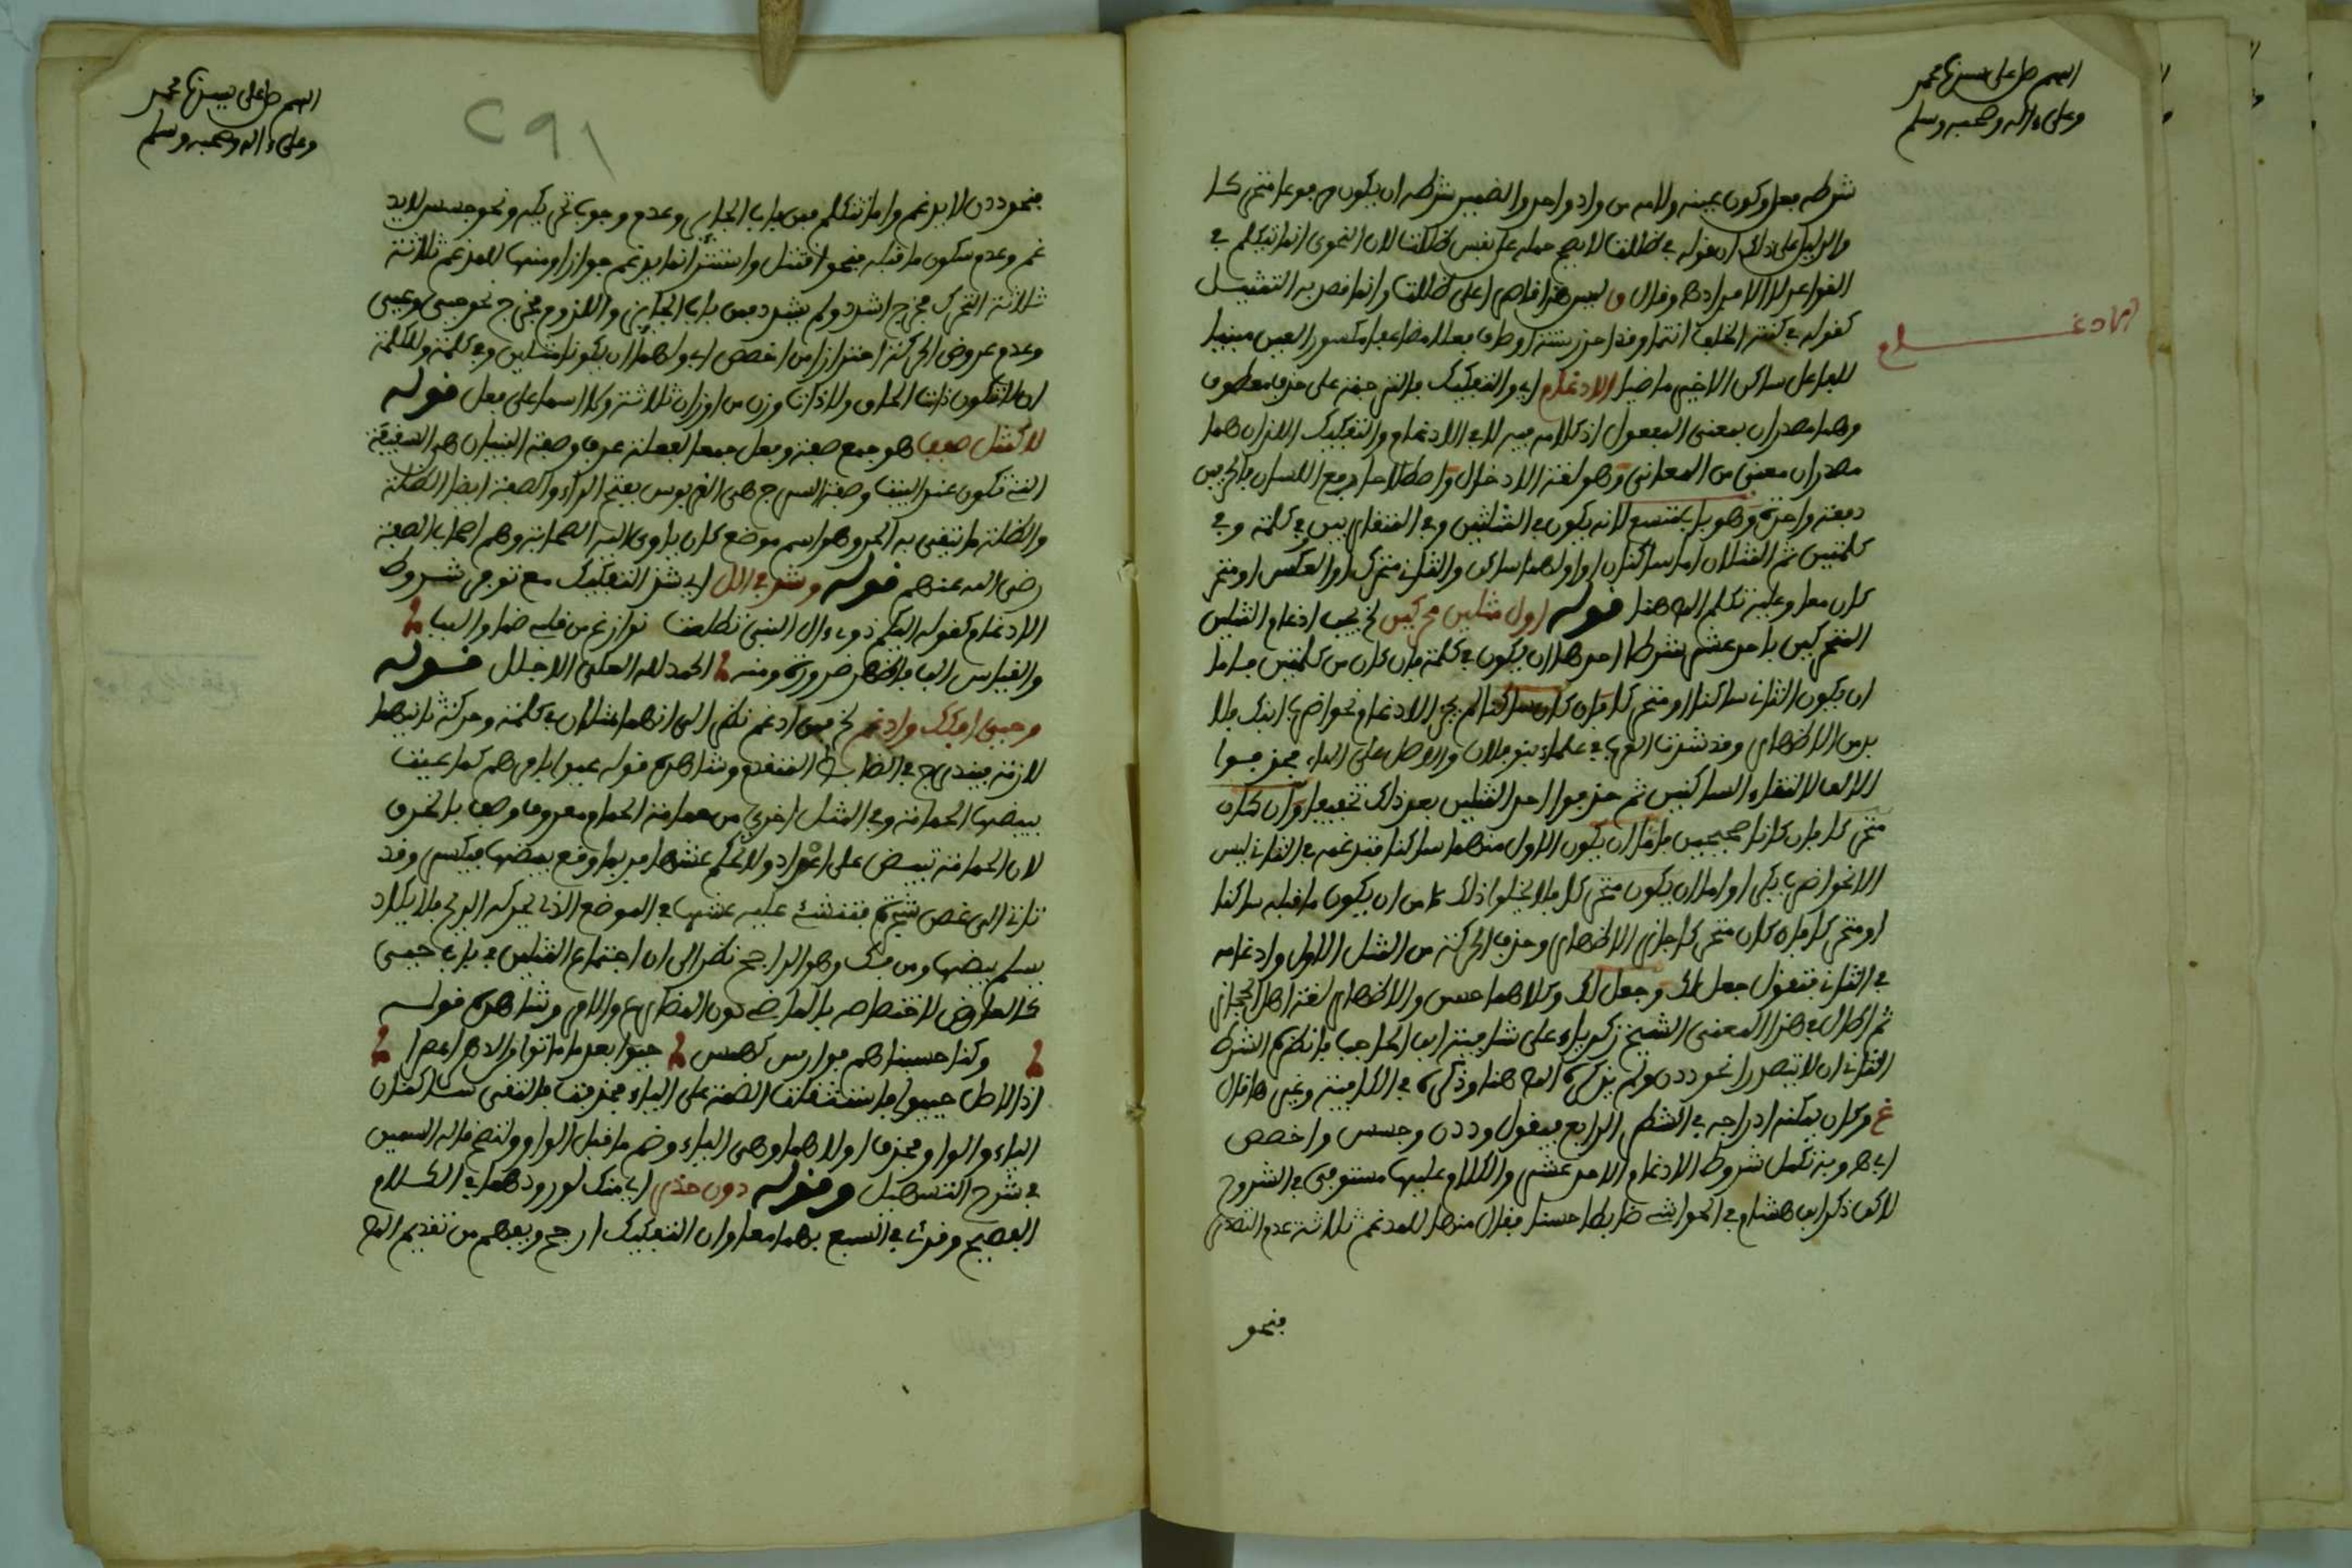 اللهم صل على سيدنا محمد
وعلى ءاله وصحبه وسلم
شرطه فعل وكون عينه ولامه من واد واحد والضمير شرطه ان يكون مرفوعا متحركا
والدليل على ذلك ان قوله في ظللت لا يصح حمله على نفس ظللت لان النحوي انما يتكلم في
القواعد لا الافراد وقال وليس هذا قاصرا على ظللت وانما قصد به التمثيل
كقوله في كنت الخلف انتما وقد احرزت شروطه فعلا مضاعفا مكسور العين مبنيا
للفاعل ساكن الاخير ماضيا الادغام اي والتفكيك فالترجمة على حذف معطوف
الادغام
وهما مصدران بمعنى المفعول اذ كلامه فيه لا في الادغام والتفكيك اللذان هما
مصدران معنى من المعاني وهو لغة الادخال واصطلاحا رفع اللسان بالحرفين
دفعة واحدة وهو باب متسع لانه يكون في المثلين وفي المتقاربين في كلمة وفي
كلمتين ثم المثلان اما ساكنان او اولهما ساكن والثاني متحرك او العكس او متحر
كان معا وعليه تكلم المص هنا قوله اول مثلين محركين الخ يجب ادغام المثلين
المتحركين باحد عشر شرطا احدها ان يكون في كلمة فان كان من كلمتين فاما
ان يكون الثاني ساكنا او متحركا فان كان ساكنا لم يجز الادغام نحو اضرب ابنك فلا
بد من الاظهار وقد شذت العرب في علماء بنو فلان والاصل على الماء فحذفوا
الالف لالتقاء الساكنين ثم حذفوا احد المثلين بعد ذلك تخفيفا وان كان
متحركا فان كانا صحيحين فاما ان يكون الاول منهما ساكنا فتدغمه في الثاني ليس
الا نحو اضرب بكرا واما ان يكون متحركا فلا يخلو اذ ذاك من ان يكون ما قبله ساكنا
او متحركا فان كان متحركا جاز الاظهار وحذف الحركة من المثل الاول وادغامه
في الثاني فتقول جعل لك وجعل لك وكلاهما حسن والاظهار لغة اهل الحجاز
ثم اطال في هذا المعنى الشيخ زكرياء على شافية ابن الحاجب فانظره الشرط
الثاني ان لا يتصدرا نحو ددن ولم يذكره المص هنا وذكره في الكافية وغيرها قال
غ وكان يمكنه ادراجه في الشطر الرابع فيقول وددن وجسس واخصص
ابى وبه تكمل شروط الادغام الاحد عشر والكلام عليها مستوفى في الشروح
لاكن ذكر ابن هشام في الحواشي ضابطا حسنا فقال منها للمدغم ثلاثة عدم التصدر
فنحو
اللهم صل على سيدنا محمد
وعلى ءاله وصحبه وسلم
291
فنحو ددن لا يدغم وانما تتكلم فيه باب الجار وعدم وجوب تحريكه ونحو جسس لا يد
غم وعدم سكون ما قبله فنحو اقتتل واستتر انما يدغم جوازا ومنها للمدغم ثلاثة
ثلاثة التحرك مخرج اشدد ولم يشدد فيه باب الجائز واللزوم مخرج نحو حيى وعيى
وعدم عروض الحركة احترازا من اخصص ابى ولهما ان يكونا مثلين وفي كلمة وللكلمة
ان لا تكون ذات الحاق ولا ذات وزن من اوزان ثلاثة وكلا اسما على فعل قوله
لا كمثل صفف هو جمع صفة وفعل جمعا لفعلة عرف وصفة البنيان هي السقيفة
التي تكون عند البيت وصفة السرج هي القربوس بفتح الراء والصفة ايضا الظلة
والظلة ما يتقى به الحر وهو اسم موضع كان ياوي اليه الصحابة وهم اصحاب الصفة
رضي الله عنهم قوله وشذ في الل اي شذ التفكيك مع توفر شروط
الادغام كقوله اليكم ذوي ءال النبي تطلعت نوازع من قلبي ظماء والبب
والقياس الب فاظهر ضرورة ومنه الحمد لله العلي الاجلل قوله
وحيى افكك وادغم الخ فمن ادغم نظر الى انهما مثلان في كلمة وحركة ثانيهما
لازمة فيندرج في الضابط المتقدم وشاهده قوله عيوا بامرهم كما عيت
ببيضتها الحمامة وفي المثل اخرق من حمامة الحمام معروف وصف بالخرق
لان الحمامة تبيض على اعواد ولا تحكم عشها فربما وقع بيضها فيكسر وقد
تاتي الى غصن شجرة فتعشش عليه عشها في الموضع الذي تحركه الريح فلا يكاد
يسلم بيضها ومن فك وهو الراجح نظر الى ان اجتماع المثلين في باب حيي
كالعارض لاختصاصه بالماضي دون المضارع والامر وشاهده قوله
وكنا حسبناهم فوارس كهمس حيوا بعد ما ماتوا من الدهر اعصرا
اذ الاصل حييوا فاستثقلت الضمة على الياء فحذفت فالتقى ساكنان
الياء والواو فحذف اولاهما وهي الياء وضم ما قبل الواو ولتصح قاله السمين
في شرح التسهيل وقوله دون حذر اي منك لورودهما في الكلام
الفصيح وقرئ في السبع بهما معا وان التفكيك ارجح ويفهم من تقديم المص